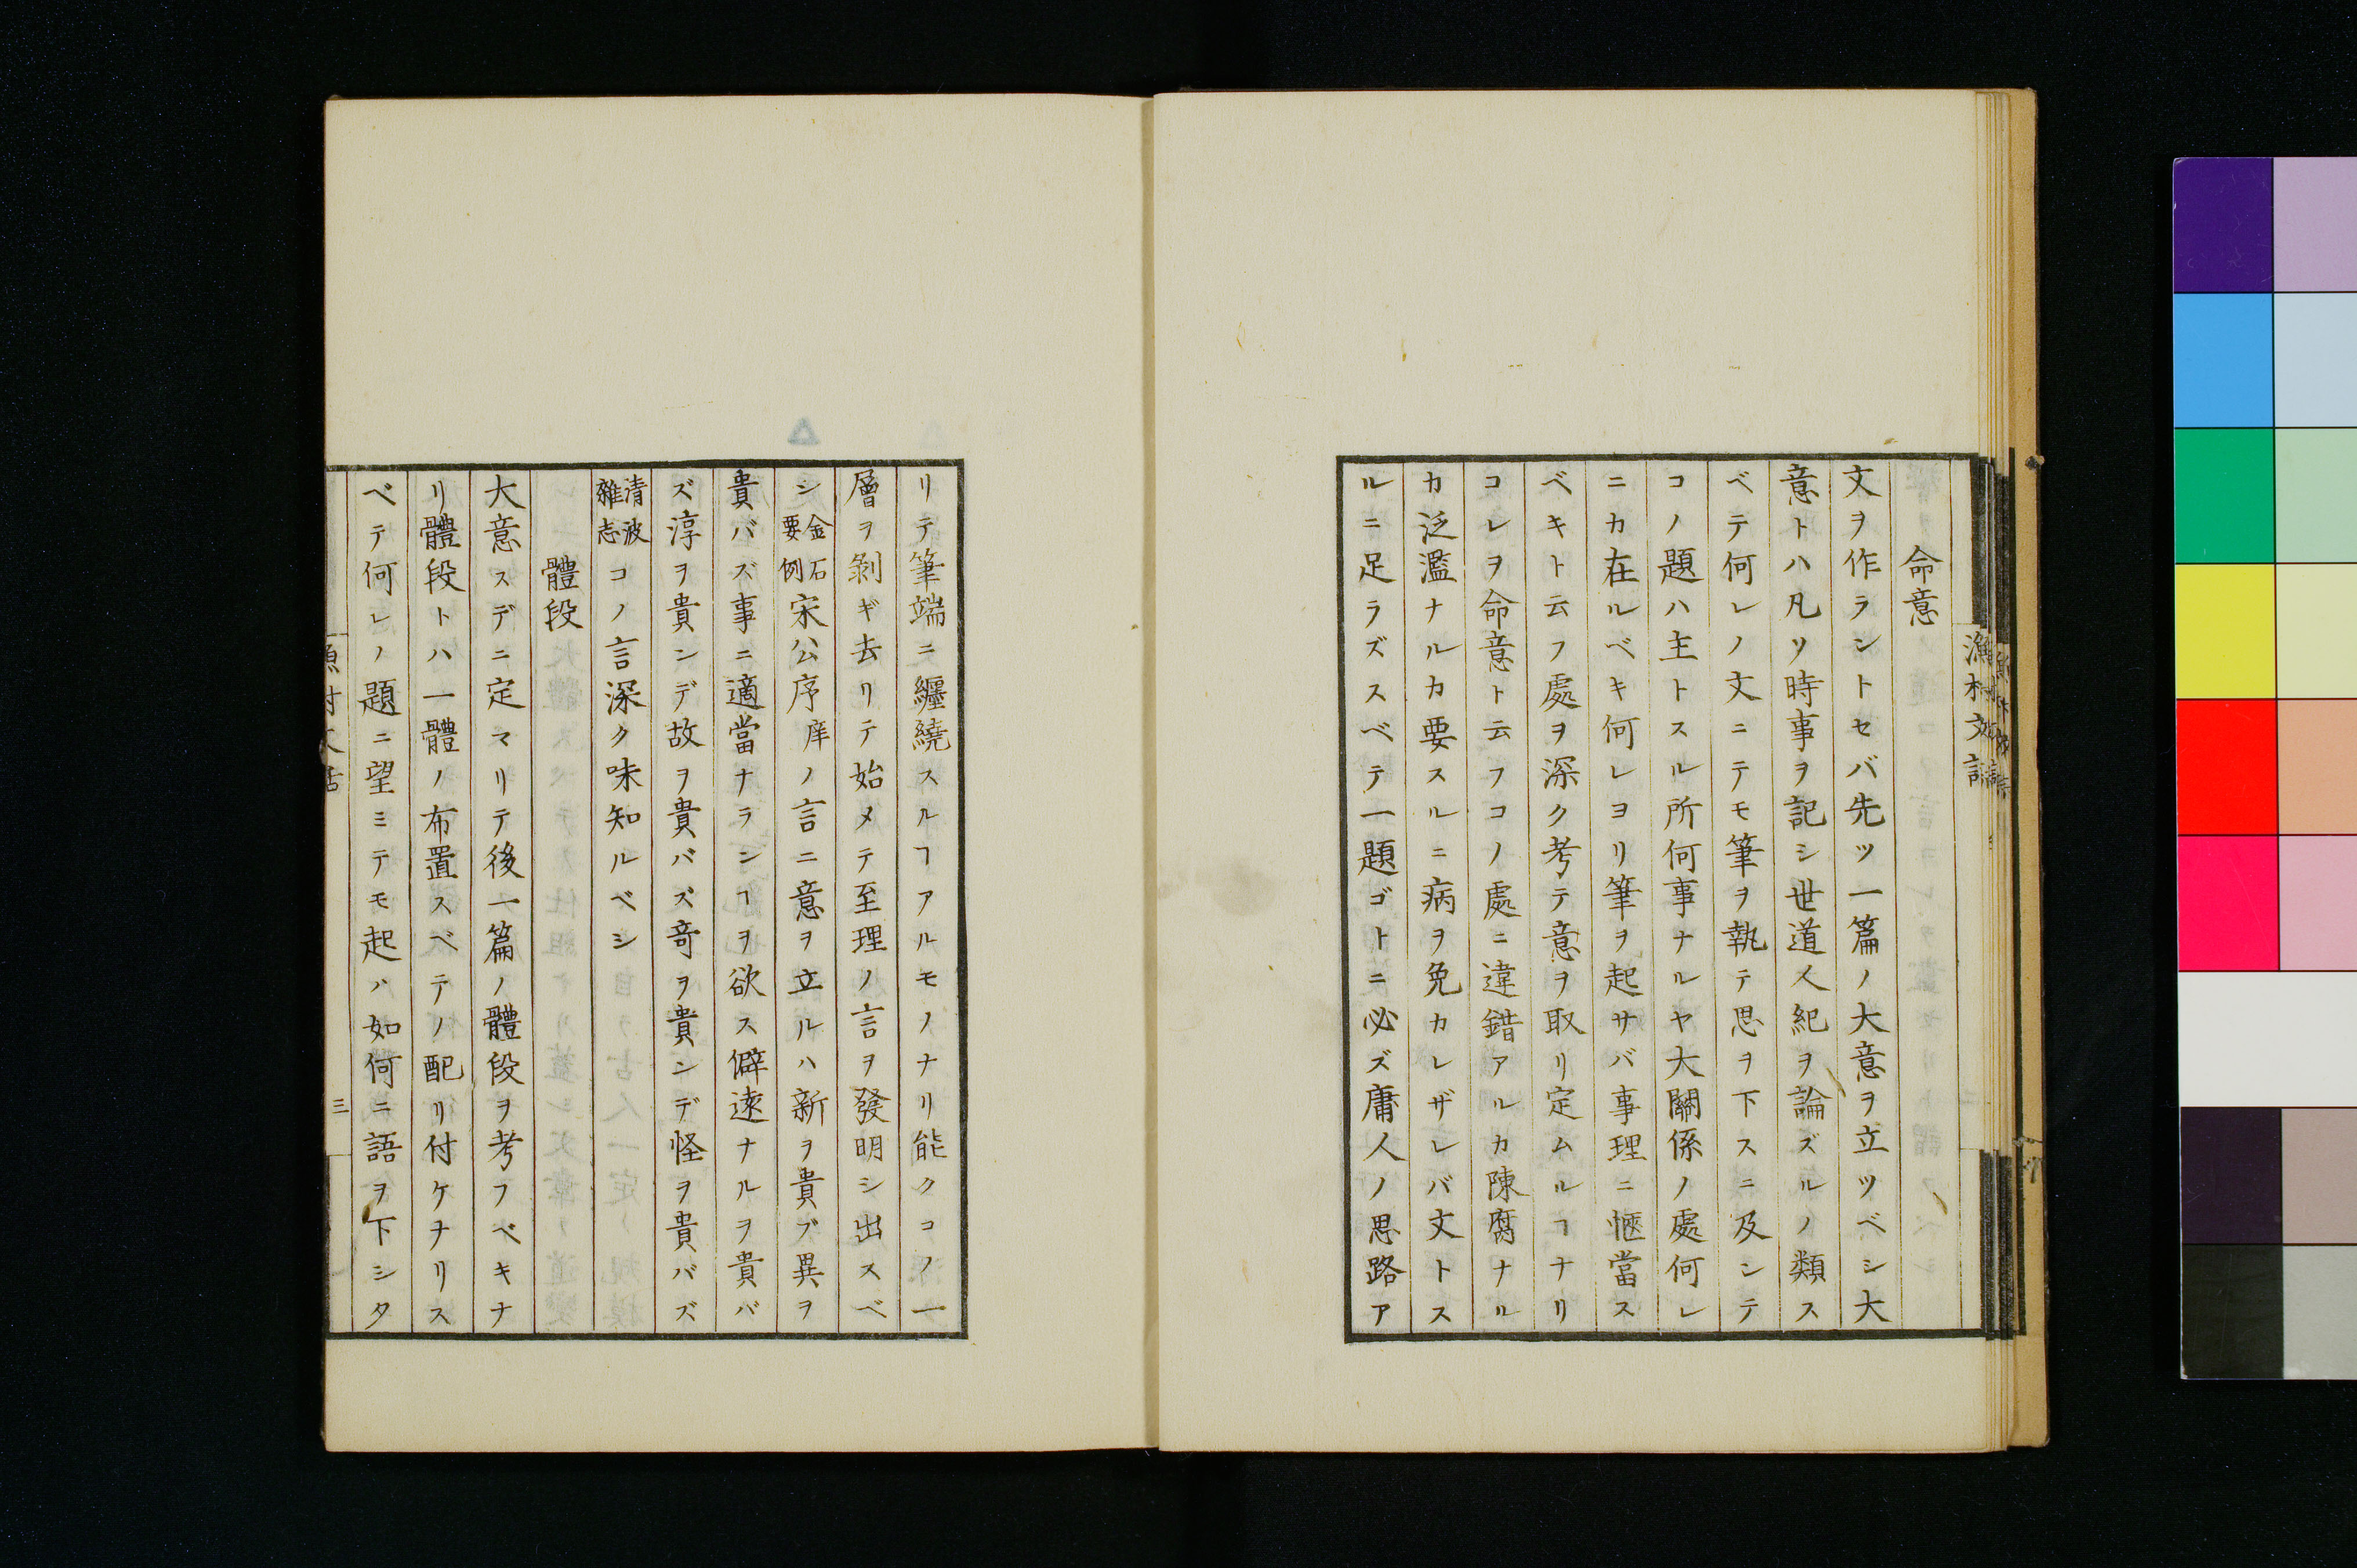 命意
文ヲ作ラントセバ先ツ一篇ノ大意ヲ立ツベシ大
意トハ凡ソ時事ヲ記シ世道人紀ヲ論ズルノ類ス
ベテ何レノ文ニテモ筆ヲ執テ思ヲ下スニ及ンテ
コノ題ハ主トスル所何事ナルヤ大關係ノ處何レ
ニカ在ルベキ何レヨリ筆ヲ起サバ事理ニ愜當ス
ベキト云フ處ヲ深ク考テ意ヲ取リ定ムルヿナリ
コレヲ命意ト云フコノ處ニ違錯アルカ陳腐ナル
カ泛濫ナルカ要スルニ病ヲ免カレザレバ文トス
ルニ足ラズスベテ一題ゴトニ必ズ庸人ノ思路ア
リテ筆端ニ纏繞スルヿアルモノナリ能クコノ一
層ヲ剝ギ去リテ始メテ至理ノ言ヲ發明シ出スベ
シ金石要例宋公序庠ノ言ニ意ヲ立ルハ新ヲ貴ブ異ヲ
貴バズ事ニ適當ナランヿヲ欲ス僻遠ナルヲ貴バ
ズ淳ヲ貴ンデ故ヲ貴バズ奇ヲ貴ンデ怪ヲ貴バズ
清波雜志コノ言深ク味知ルベシ
體段
大意スデニ定マリテ後一篇ノ體段ヲ考フベキナ
リ體段トハ一體ノ布置スベテノ配リ付ケヲナリス
ベテ何レノ題ニ望ミテモ起ハ如何ニ語ヲ下シタ
漁村文話
三